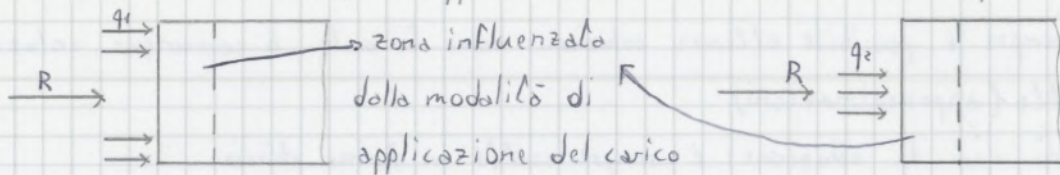 q1
zona influenzata
R
dalla modalità di
R
q2
applicazione del carico